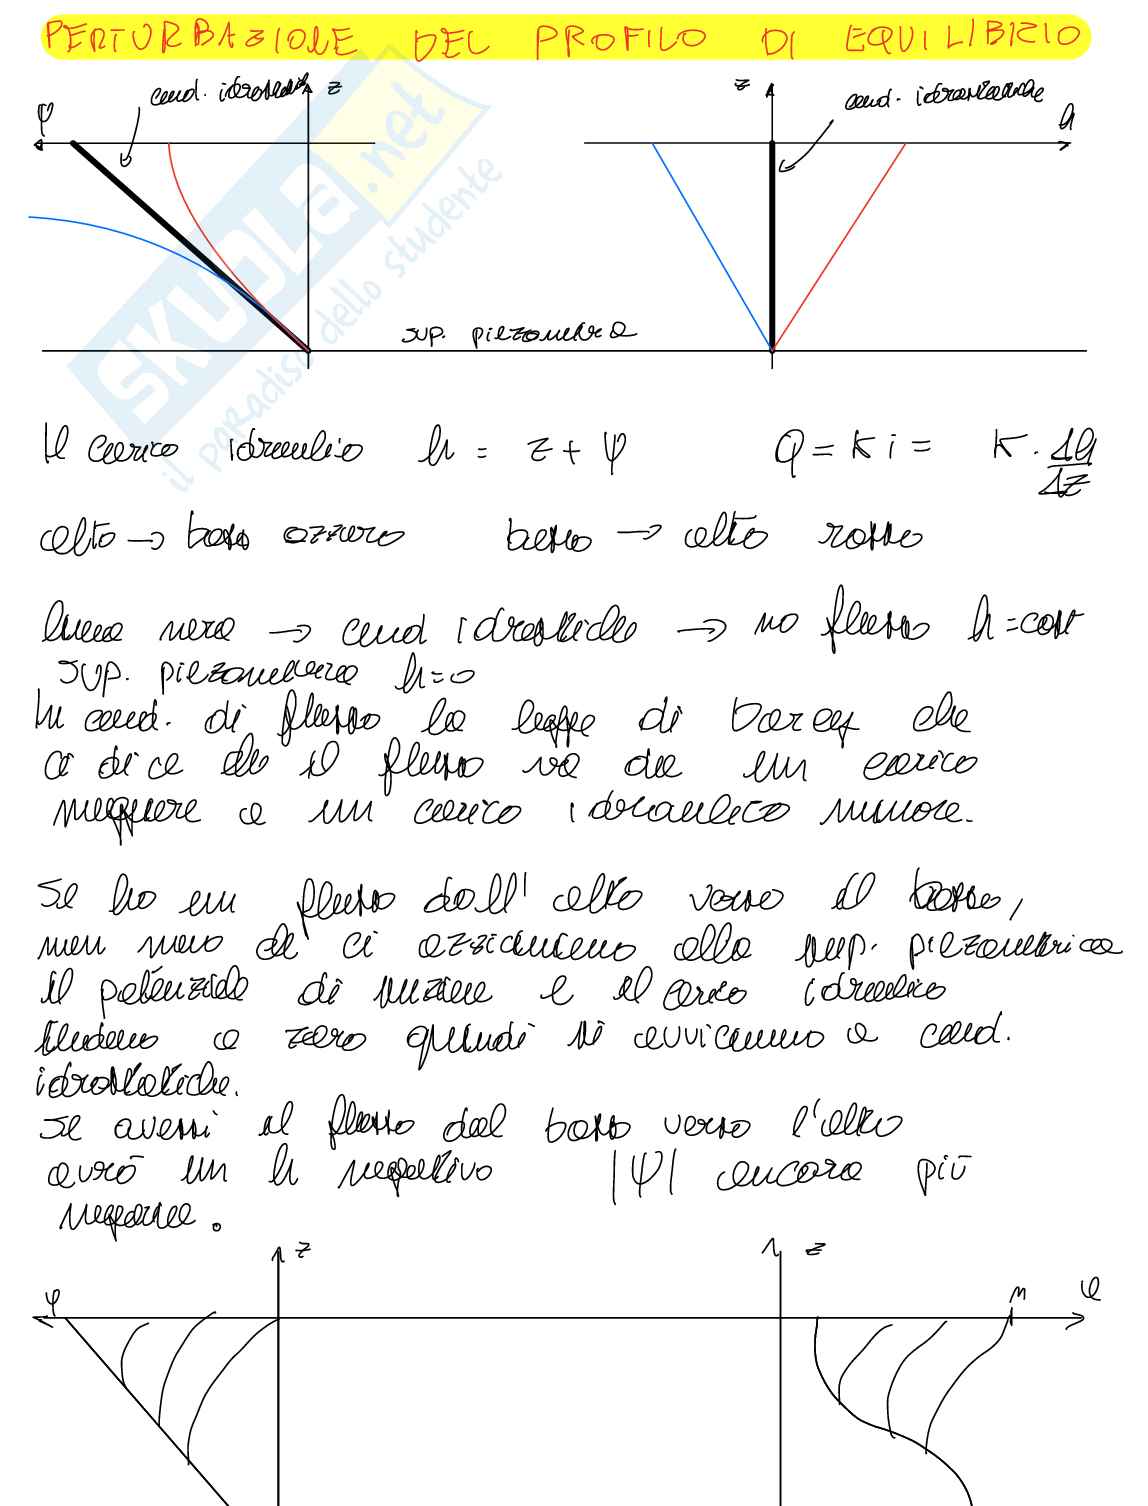 PERTURBAZIONE DEL PROFILO DI EQUILIBRIO
cond. idrostatiche z
ψ
z cond. idrostatiche
h
sup. piezometrica
Il carico idraulico h = z + ψ Q = K i = K · Δh/Δz
alto → basso azzuro basso → alto rosso
linea nera → cond idrostatiche → no flusso h = cost
sup. piezometrica h = 0
In cond. di flusso la legge di Darcy che
ci dice che il flusso va da un carico
maggiore a un carico idraulico minore.
Se ho un flusso dall' alto verso il basso,
man mano che ci avviciniamo alla sup. piezometrica
il potenziale di suzione e il carico idraulico
tendono a zero quindi si avvicinano a cond.
idrostatiche.
se avessi il flusso dal basso verso l'alto
avrò un h negativo |ψ| ancora più
ψ z
z φ
SKUOLA.net
il paradiso dello studente